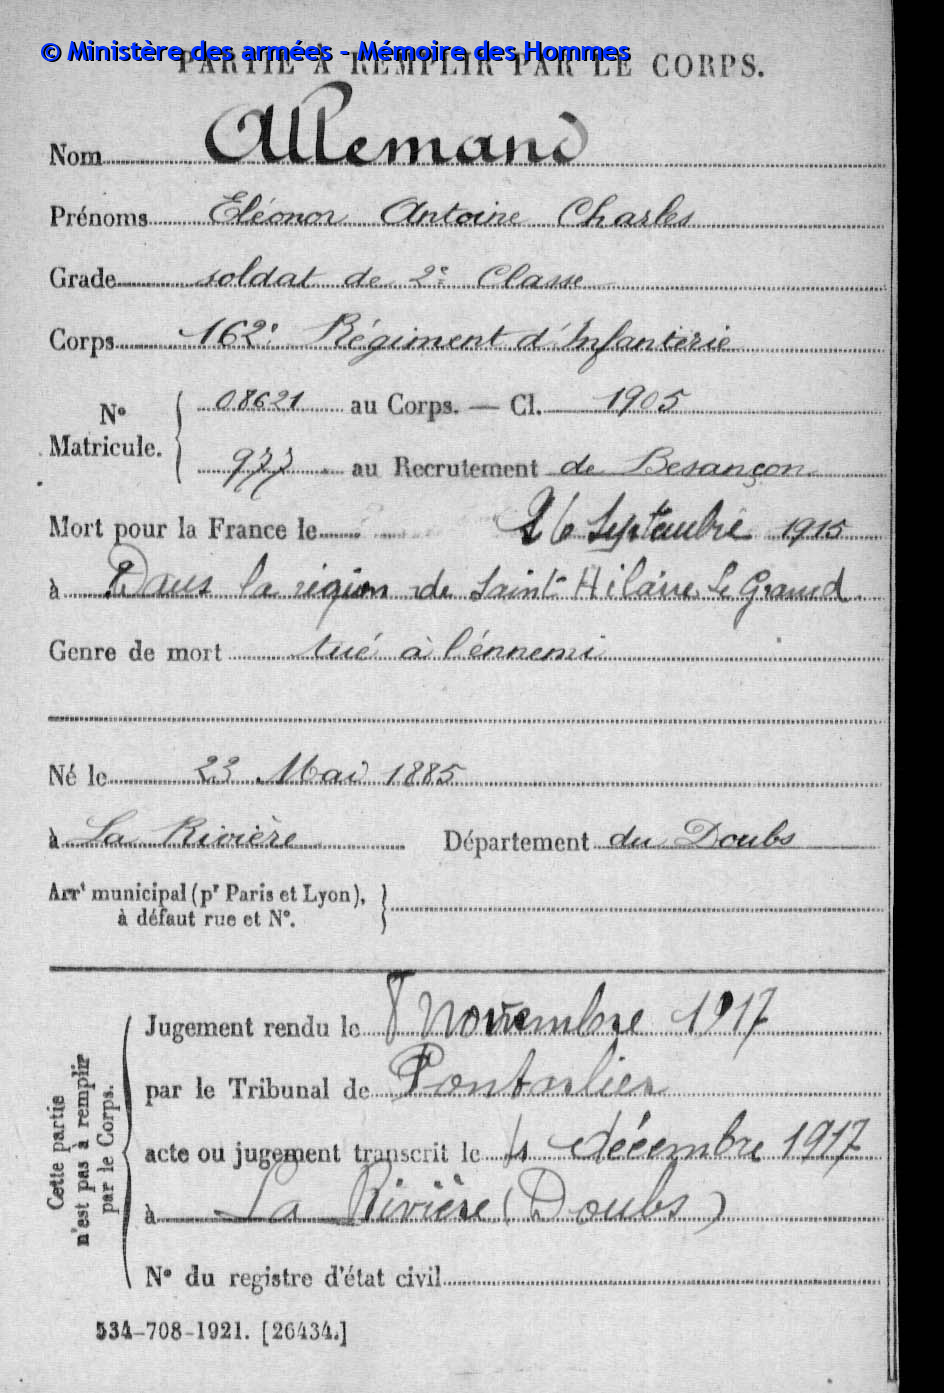 © Ministère des armées - Mémoire des Hommes
PARTIE À REMPLIR PAR LE CORPS.
Nom Allemand
Prénoms Eléonor Antoine Charles
Grade soldat de 2e Classe
Corps 162e Régiment d'Infanterie
N° Matricule. { 08621 au Corps. — Cl. 1905
977 au Recrutement de Besançon
Mort pour la France le 26 Septembre 1915
à Dans la région de Saint-Hilaire le Grand
Genre de mort tué à l'énnemi
Né le 23 Mai 1885
à La Rivière Département du Doubs
Arrt municipal (pr Paris et Lyon),
à défaut rue et N°.
Cette partie
n'est pas à remplir
par le Corps.
Jugement rendu le 8 Novembre 1917
par le Tribunal de Pontarlier
acte ou jugement transcrit le 4 décembre 1917
à La Rivière (Doubs)
N° du registre d'état civil
534-708-1921. [26434.]